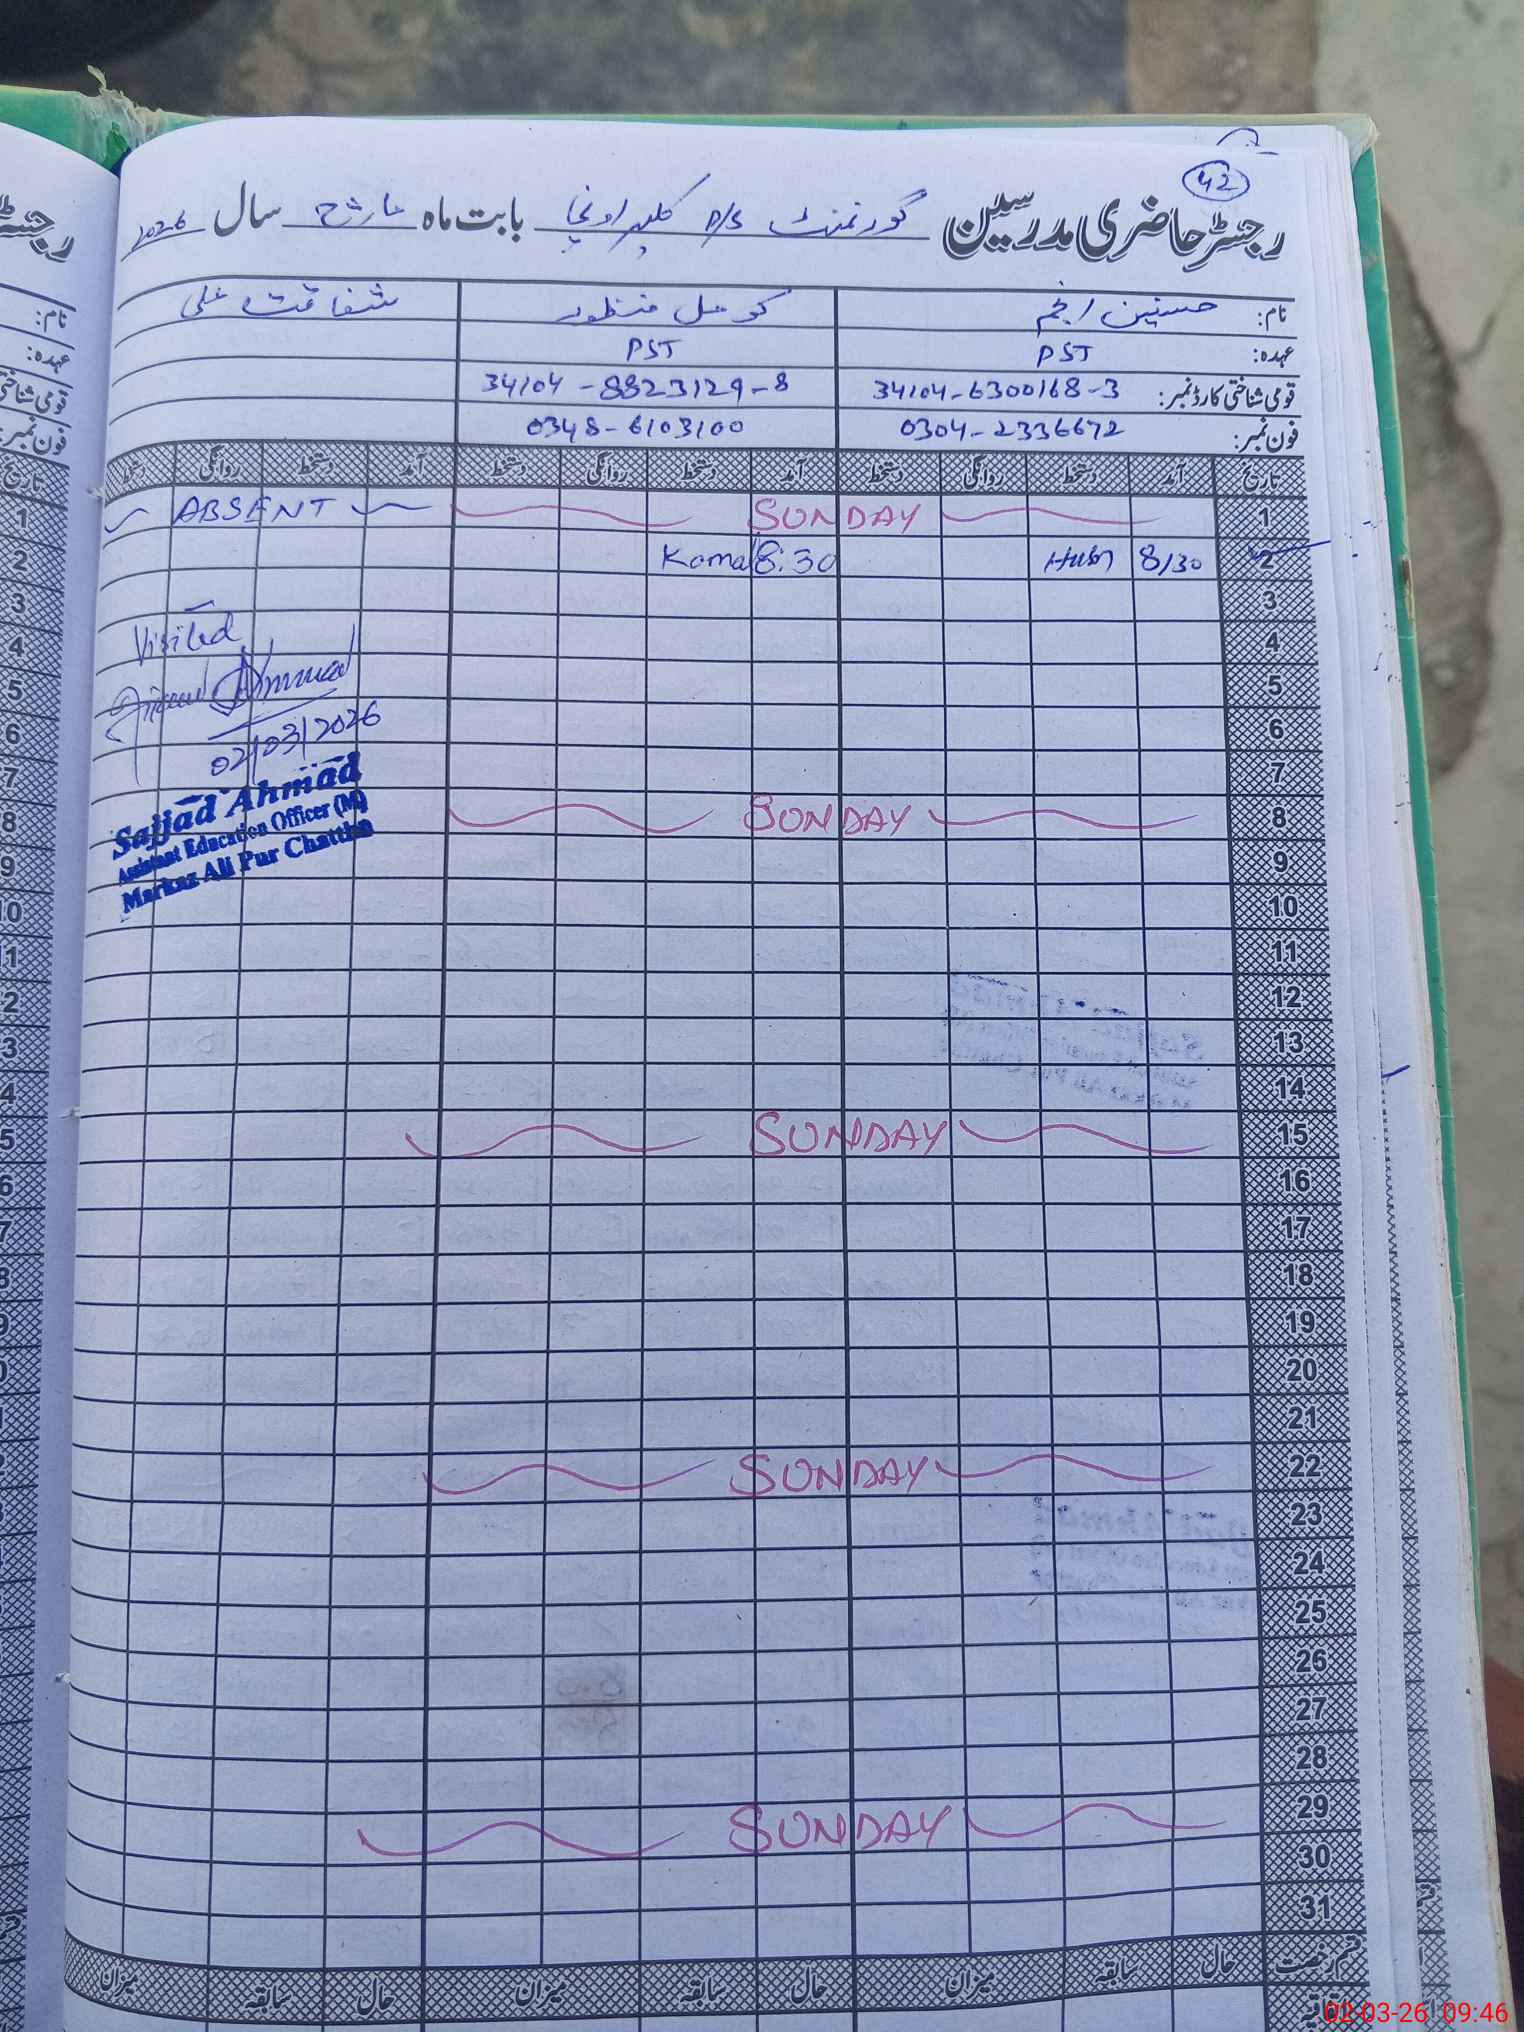 42
رجسٹر حاضری مدرسین گورنمنٹ P/S بابت ماہ مارچ سال 2026
نام: حسنین انجم کومل منظور شفاقت علی
عہدہ: PST PST
قومی شناختی کارڈ نمبر: 34104-6300168-3 34104-8823129-8
فون نمبر: 0304-2336672 0348-6103100
تاریخ آمد دستخط روانگی دستخط آمد دستخط روانگی دستخط آمد دستخط روانگی دستخط
1 SUNDAY ABSENT
2 8/30 8:30 Komal
3
4
Visited
5
Ahmad
6
02/03/2026
7
8 SUNDAY
Sajjad Ahmad
Assistant Education Officer (M)
Markaz Ali Pur Chattha
9
10
11
12
13
14
15 SUNDAY
16
17
18
19
20
21
22 SUNDAY
23
24
25
26
27
28
29 SUNDAY
30
31
قسم رخصت حال سابقہ میزان حال سابقہ میزان حال سابقہ میزان
02-03-26 09:46